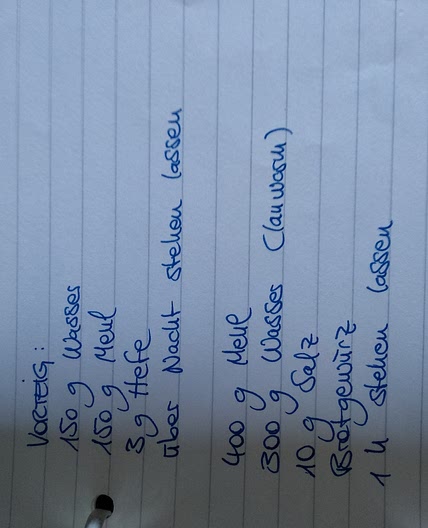 VORTEIG:
150 g Wasser
150 g Mehl
3 g Hefe
über Nacht stehen lassen
400 g Mehl
300 g Wasser (lauwarm)
10 g Salz
Brotgewürz
1 h stehen lassen